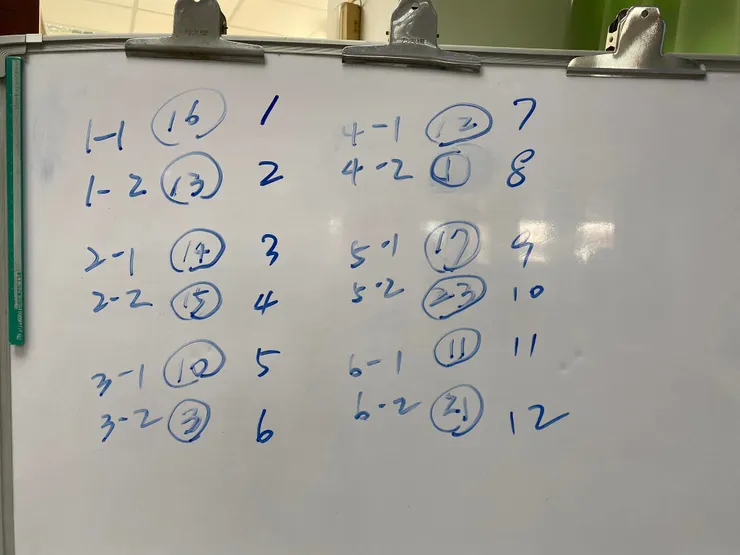 1-1 16 1
1-2 13 2
2-1 14 3
2-2 15 4
3-1 10 5
3-2 3 6
4-1 12 7
4-2 1 8
5-1 17 9
5-2 23 10
6-1 11 11
6-2 21 12